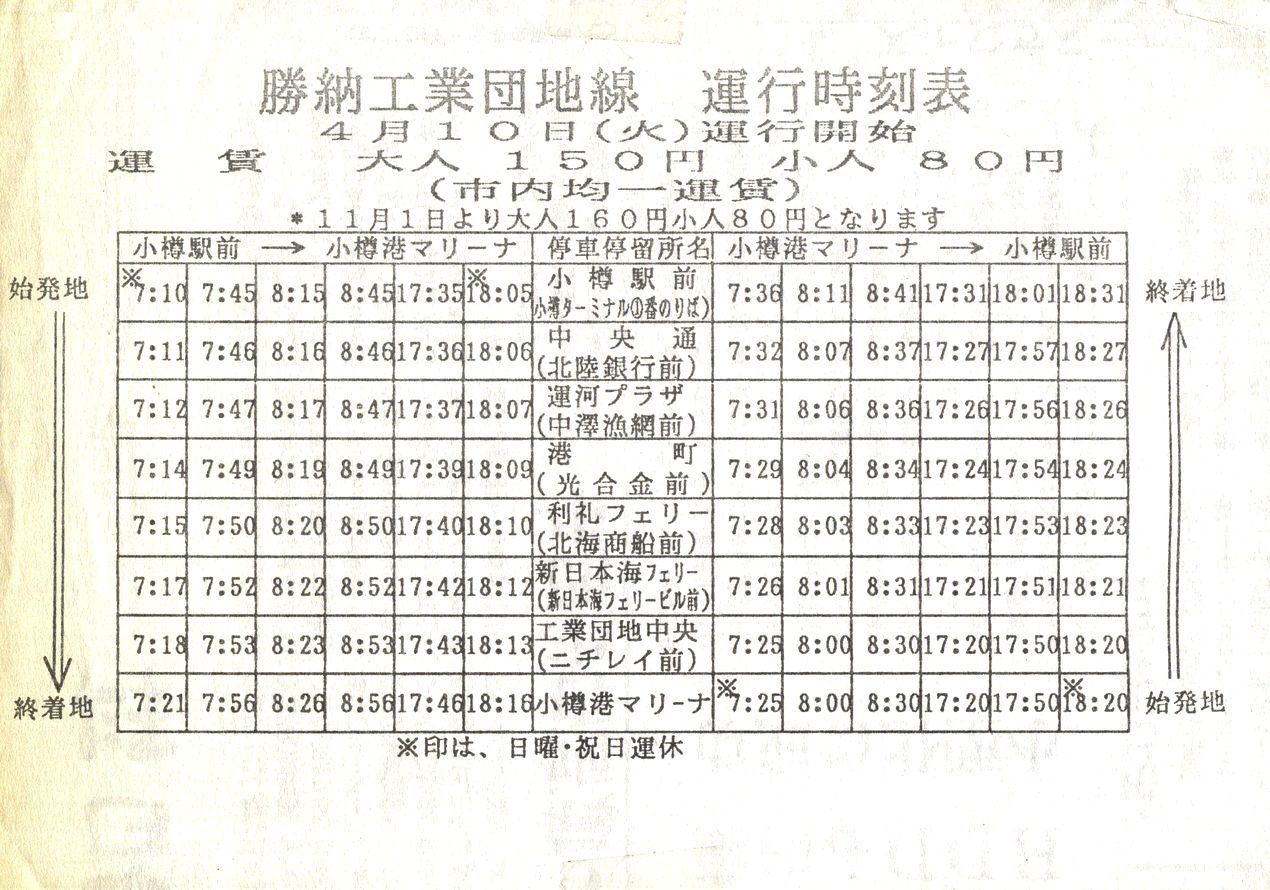 勝納工業団地線　運行時刻表
４月１０日(火)運行開始
運　賃　　大人　１５０円　小人　８０円
(市内均一運賃)
＊１１月１日より大人１６０円小人８０円となります
小樽駅前 → 小樽港マリーナ 停車停留所名 小樽港マリーナ → 小樽駅前
始発地 ※7:10 7:45 8:15 8:45 17:35 ※18:05 小樽駅前 7:36 8:11 8:41 17:31 18:01 18:31 終着地
小樽ターミナル①番のりば)
7:11 7:46 8:16 8:46 17:36 18:06 中央通 7:32 8:07 8:37 17:27 17:57 18:27
(北陸銀行前)
7:12 7:47 8:17 8:47 17:37 18:07 運河プラザ 7:31 8:06 8:36 17:26 17:56 18:26
(中澤漁網前)
7:14 7:49 8:19 8:49 17:39 18:09 港町 7:29 8:04 8:34 17:24 17:54 18:24
(光合金前)
7:15 7:50 8:20 8:50 17:40 18:10 利礼フェリー 7:28 8:03 8:33 17:23 17:53 18:23
(北海商船前)
7:17 7:52 8:22 8:52 17:42 18:12 新日本海フェリー 7:26 8:01 8:31 17:21 17:51 18:21
(新日本海フェリービル前)
7:18 7:53 8:23 8:53 17:43 18:13 工業団地中央 7:25 8:00 8:30 17:20 17:50 18:20
(ニチレイ前)
終着地 7:21 7:56 8:26 8:56 17:46 18:16 小樽港マリーナ ※7:25 8:00 8:30 17:20 17:50 ※18:20 始発地
※印は、日曜・祝日運休